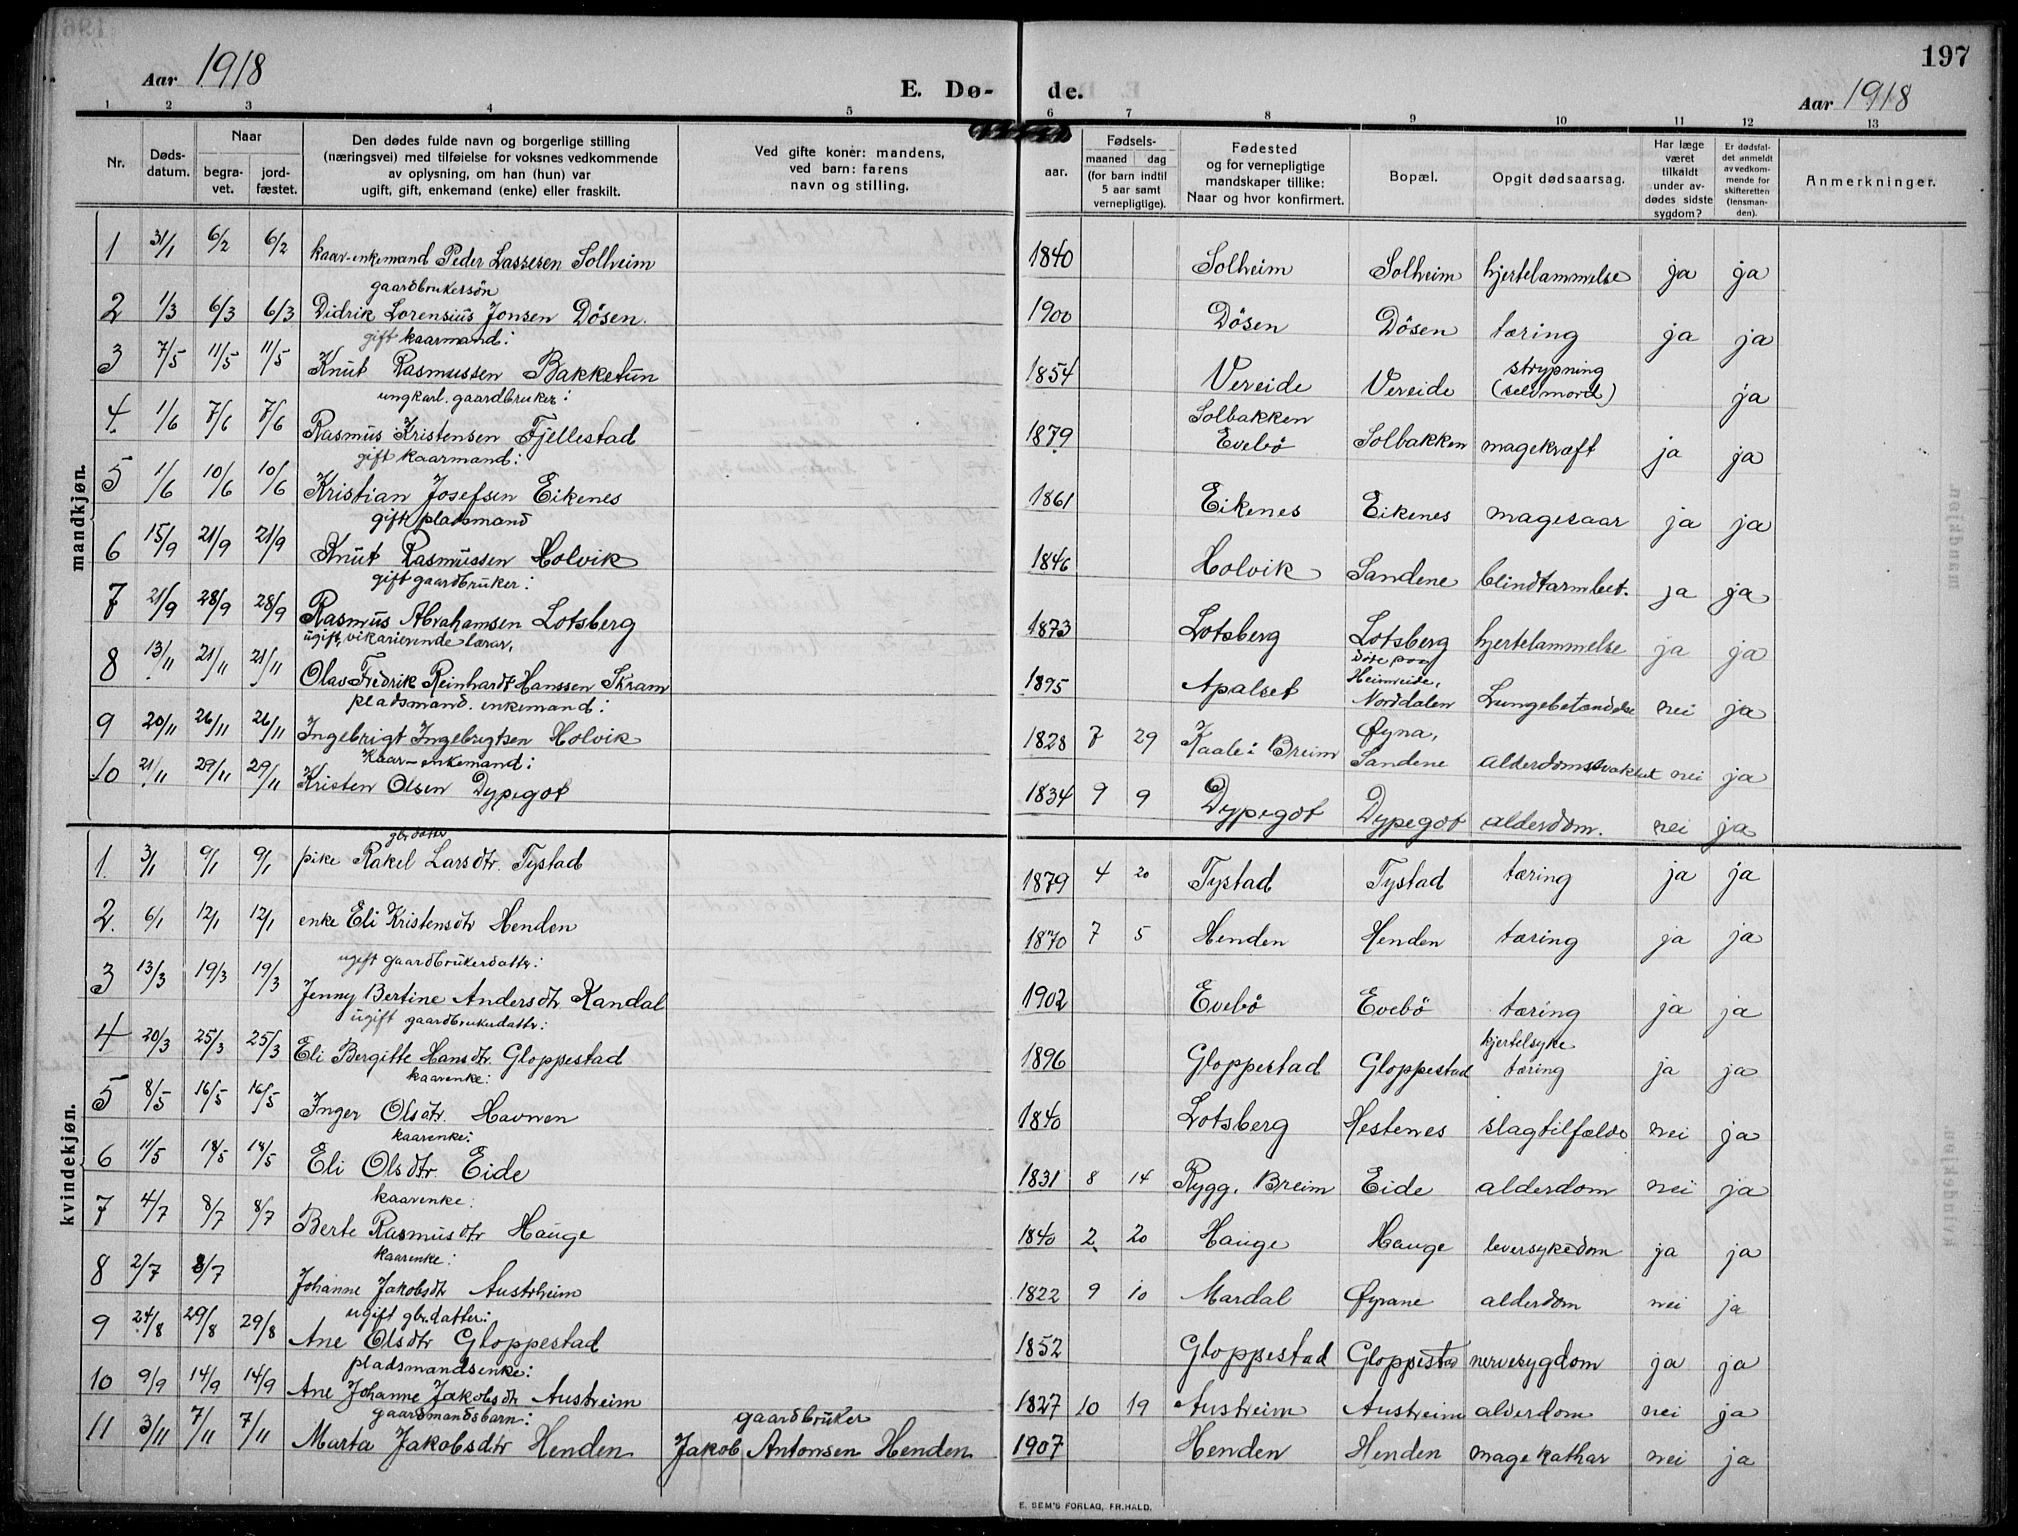 197
Aar 1918
E. Dø-
de.
Aar 1918
1 2 3 4 5 6 7 8 9 10 11 12 13
Nr.
Døds-
datum.
Naar
begra-
vet.
jord-
fæstet.
Den dødes fulde navn og borgerlige stilling
(næringsvei) med tilføielse for voksnes vedkommende
av oplysning, om han (hun) var
ugift, gift, enkemand (enke) eller fraskilt.
Ved gifte koner: mandens,
ved barn: farens
navn og stilling.
aar.
Fødsels-
maaned dag
(for barn indtil
5 aar samt
vernepligtige).
Fødested
og for vernepligtige
mandskaper tillike:
Naar og hvor konfirmert.
Bopæl.
Opgit dødsaarsag.
Har læge
været
tilkaldt
under av-
dødes sidste
sygdom?
Er dødsfal-
det anmeldt
av vedkom-
mende for
skifteretten
(lensman-
den).
Anmerkninger.
mandkjøn.
1 31/1 6/2 6/2 kaar-enkemand Peder Lassesen Solheim 1840 Solheim Solheim hjertelammelse ja ja
gaardbrukersøn
2 1/3 6/3 6/3 Didrik Lorensius Jonsen Dösen. 1900 Dösen Dösen tæring ja ja
gift kaarmand:
3 7/5 11/5 11/5 Knut Rasmussen Bakketun 1854 Vereide Vereide strypning
(selvmord) ja
ungkarl. gaardbruker:
4. 1/6 7/6 7/6 Rasmus Kristensen Fjellestad 1879 Solbakken
Evebö Solbakken magekræft ja ja
gift kaarmand:
5 1/6 10/6 10/6 Kristian Josefsen Eikenes 1861 Eikenes Eikenes magesaar ja ja
gift pladsmand
6 15/9 21/9 21/9 Knut Rasmussen Holvik 1846 Holvik Sandene blindtarmbet. ja ja
gift gaardbruker:
7 21/9 28/9 28/9 Rasmus Abrahamsen Lotsberg 1873 Lotsberg Lotsberg hjertelammelse ja ja
ugift, vikarierende lærar,
8 13/11 21/11 21/11 Olav Fredrik Reinhardt Hanssen Skram 1895 Apalset döde paa
Heimreide,
Norddalen Lungebetændelse nei ja
pladsmand. enkemand:
9 20/11 26/11 26/11 Ingebrigt Ingebrigtsen Holvik 1828 7 29 Kaale i Breim Øyna,
Sandene alderdomssvakhet nei ja
Kaar-enkemand:
10 21/11 29/11 29/11 Kristen Olsen Dypegot 1834 9 9 Dypegot Dypegot alderdom. nei ja
kvindekjøn.
gbr.dattr
1. 3/1 9/1 9/1 pike Rakel Larsdtr. Tystad 1879 4 20 Tystad Tystad tæring ja ja
2. 6/1 12/1 12/1 enke Eli Kristensdtr Henden 1870 7 5 Henden Henden tæring ja ja
ugift gaardbrukerdattr:
3 13/3 19/3 19/3 Jenny Bertine Andersdtr. Kandal 1902 Evebö Evebö tæring ja ja
ugift gaardbrukerdattr:
4 20/3 25/3 25/3 Eli Bergitte Hansdtr. Gloppestad 1896 Gloppestad Gloppestad kjertelsyke
tæring ja ja
kaarenke:
5 8/5 16/5 16/5 Inger Olsdtr. Havnen 1840 Lotsberg Hestenes slagtilfælde nei ja
kaarenke:
6 11/5 18/5 18/5 Eli Olsdtr. Eide 1831 8 14 Rygg, Breim Eide alderdom nei ja
kaarenke:
7 4/7 8/7 8/7 Berte Rasmusdtr Hauge 1840 2 20 Hauge Hauge leversykedom ja ja
kaarenke:
8 2/7 8/7 Johanne Jakobsdtr Austrheim 1822 9 10 Mardal Øyrane alderdom nei ja
ugift gbr.datter:
9 24/8 29/8 29/8 Ane Olsdtr Gloppestad 1852 Gloppestad Gloppestad nervesygdom ja ja
pladsmandsenke:
10 9/9 14/9 14/9 Ane Johanne Jakobsdtr Austreim 1827 10 19 Austreim Austreim alderdom nei ja
gaardmandsbarn: gaardbruker
11 3/11 7/11 7/11 Marta Jakobsdtr Henden Jakob Antonsen Henden 1907 Henden Henden magekathar nei ja
E. SEM'S FORLAG, FR.HALD.